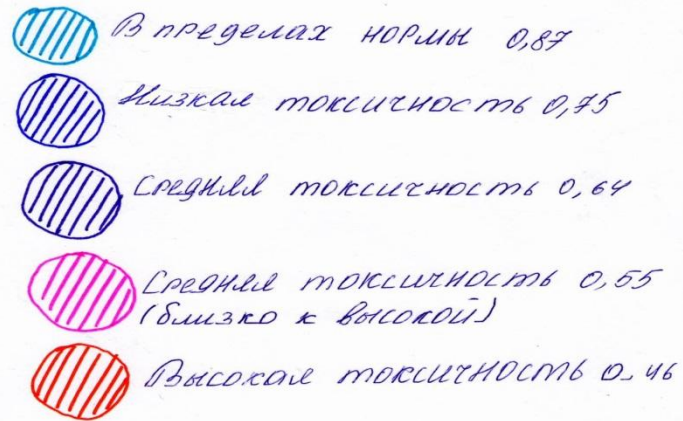 В пределах нормы 0,87
Низкая токсичность 0,75
Средняя токсичность 0,64
Средняя токсичность 0,55
(близко к высокой)
Высокая токсичность 0,46